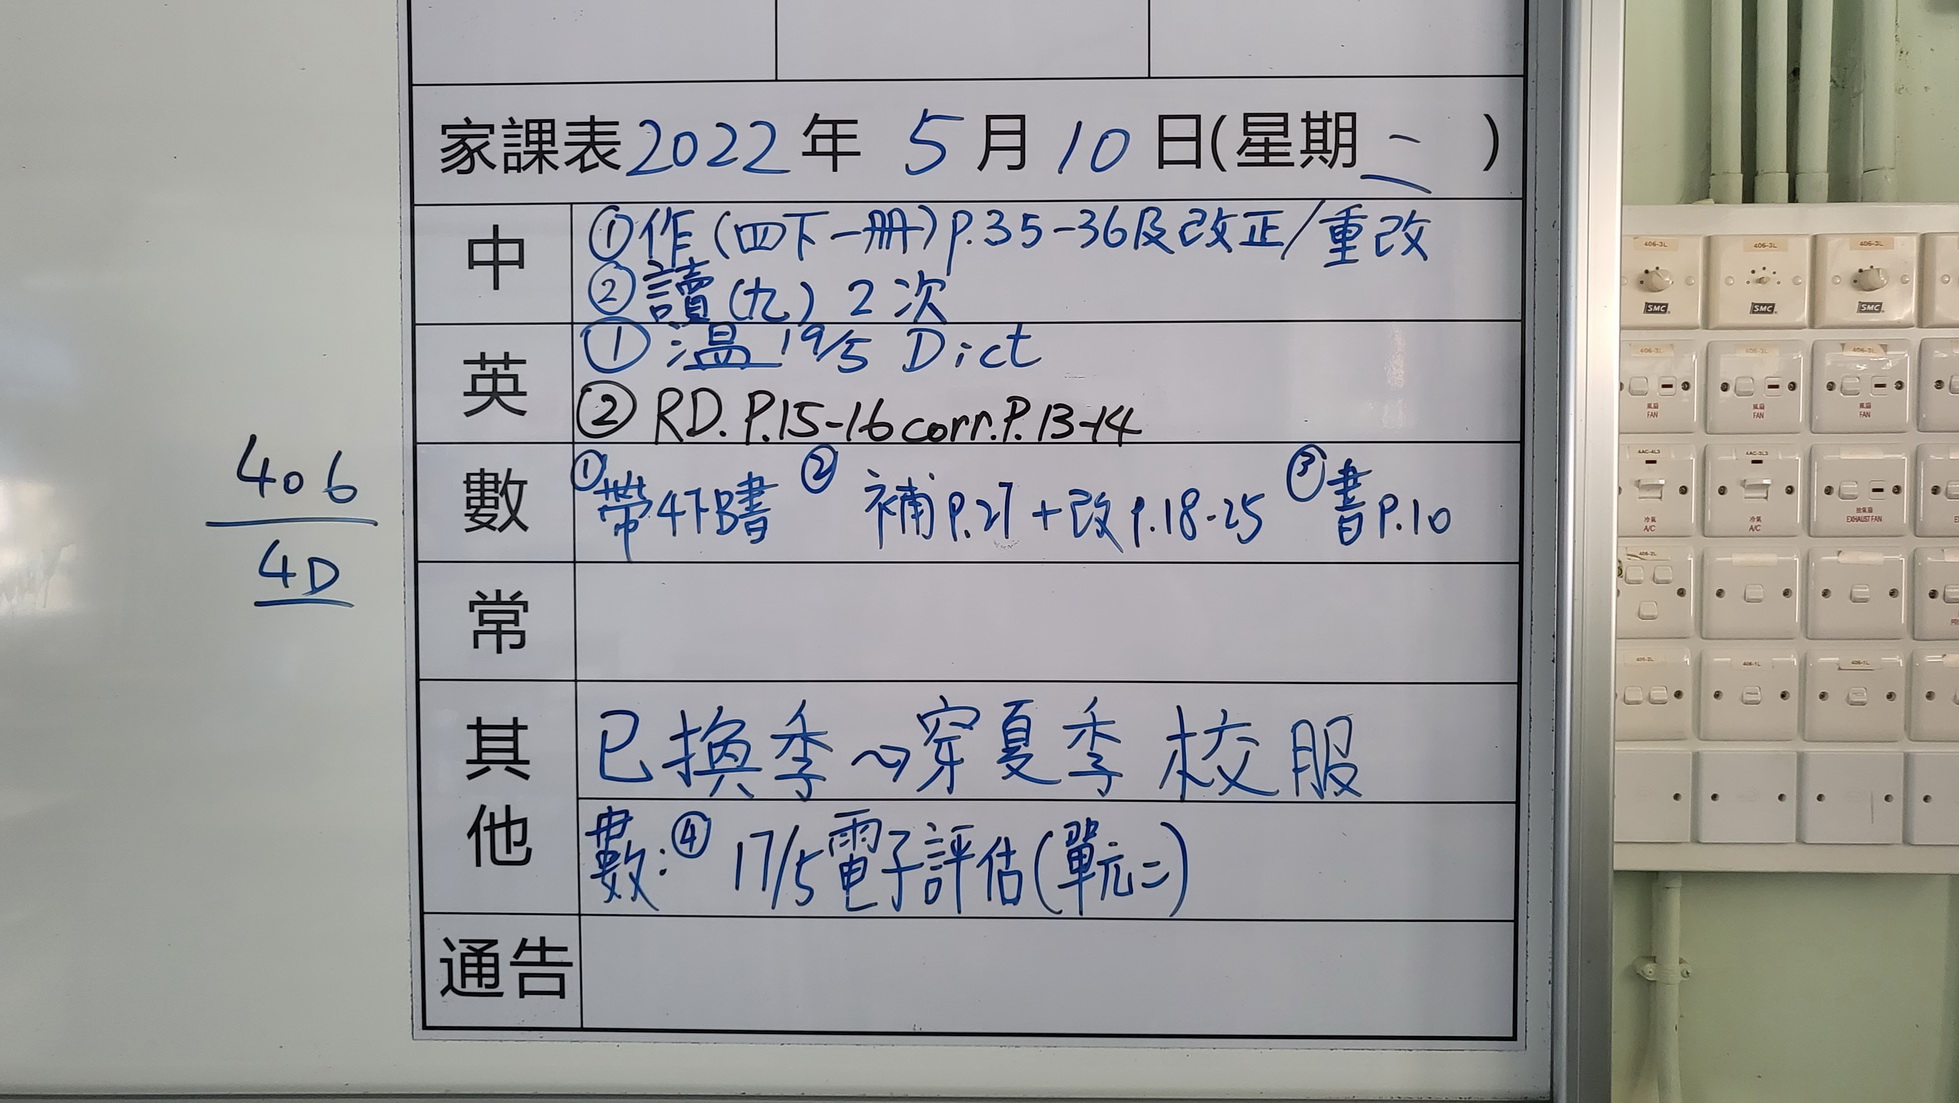 家課表2022年 5月10日(星期二)
中
①作(四下一册)P.35-36及改正/重改
②讀(九) 2次
英
①溫 19/5 Dict
②RD. P.15-16 corr. P.13-14
數
①帶4下B書 ②補P.27+改P.18-25 ③書P.10
常
其他
已換季~穿夏季校服
數:④ 17/5電子評估(單元二)
通告
406
4D
406-3L
406-3L
406-3L
SMC
SMC
SMC
406-3L
406-3L
406-3L
風扇
FAN
風扇
FAN
風扇
FAN
4AC-4L3
4AC-3L3
冷氣
A/C
冷氣
A/C
抽氣扇
EXHAUST FAN
406-2L
406-2L
406-1L
406-1L